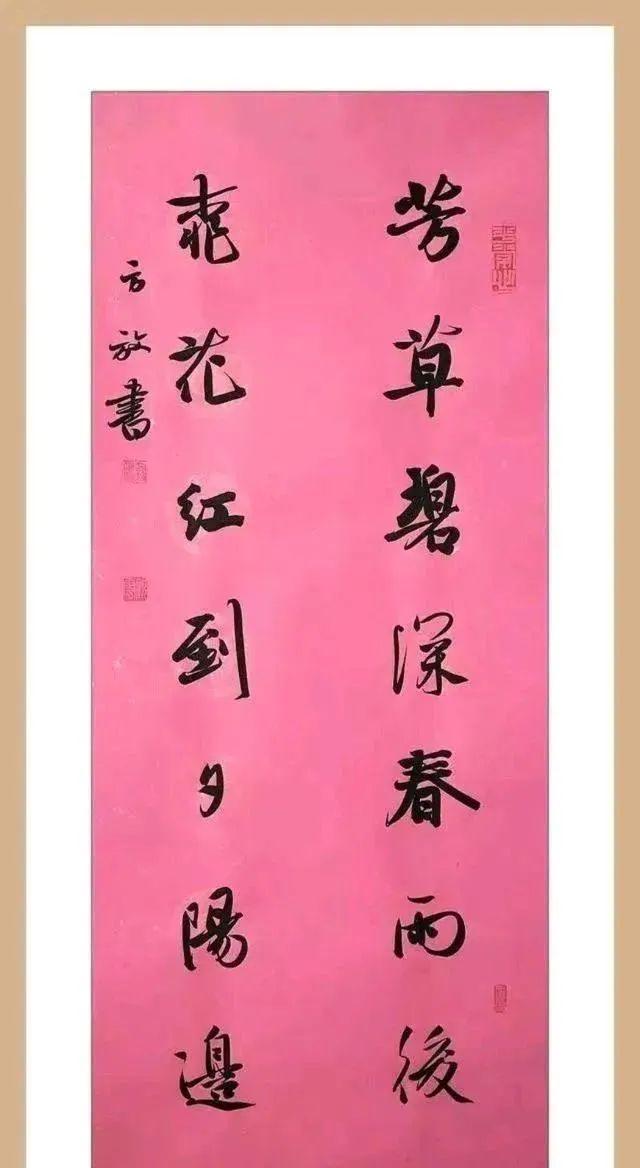 芳草碧深春雨後
桃花紅到夕陽邊
方放書